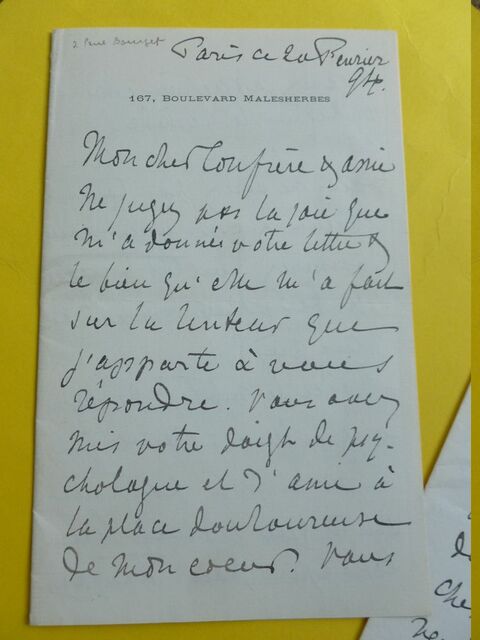 à Paul Bourget
Paris ce 20 Fevrier
94.
167, BOULEVARD MALESHERBES
Mon cher Confrère & ami
Ne jugez pas la joie que
m'a donnée votre lettre &
le bien qu'elle m'a fait
sur la lenteur que
j'apporte à vous
répondre. Vous avez
mis votre doigt de psy-
chologue et d'ami à
la place douloureuse
de mon coeur. Vous